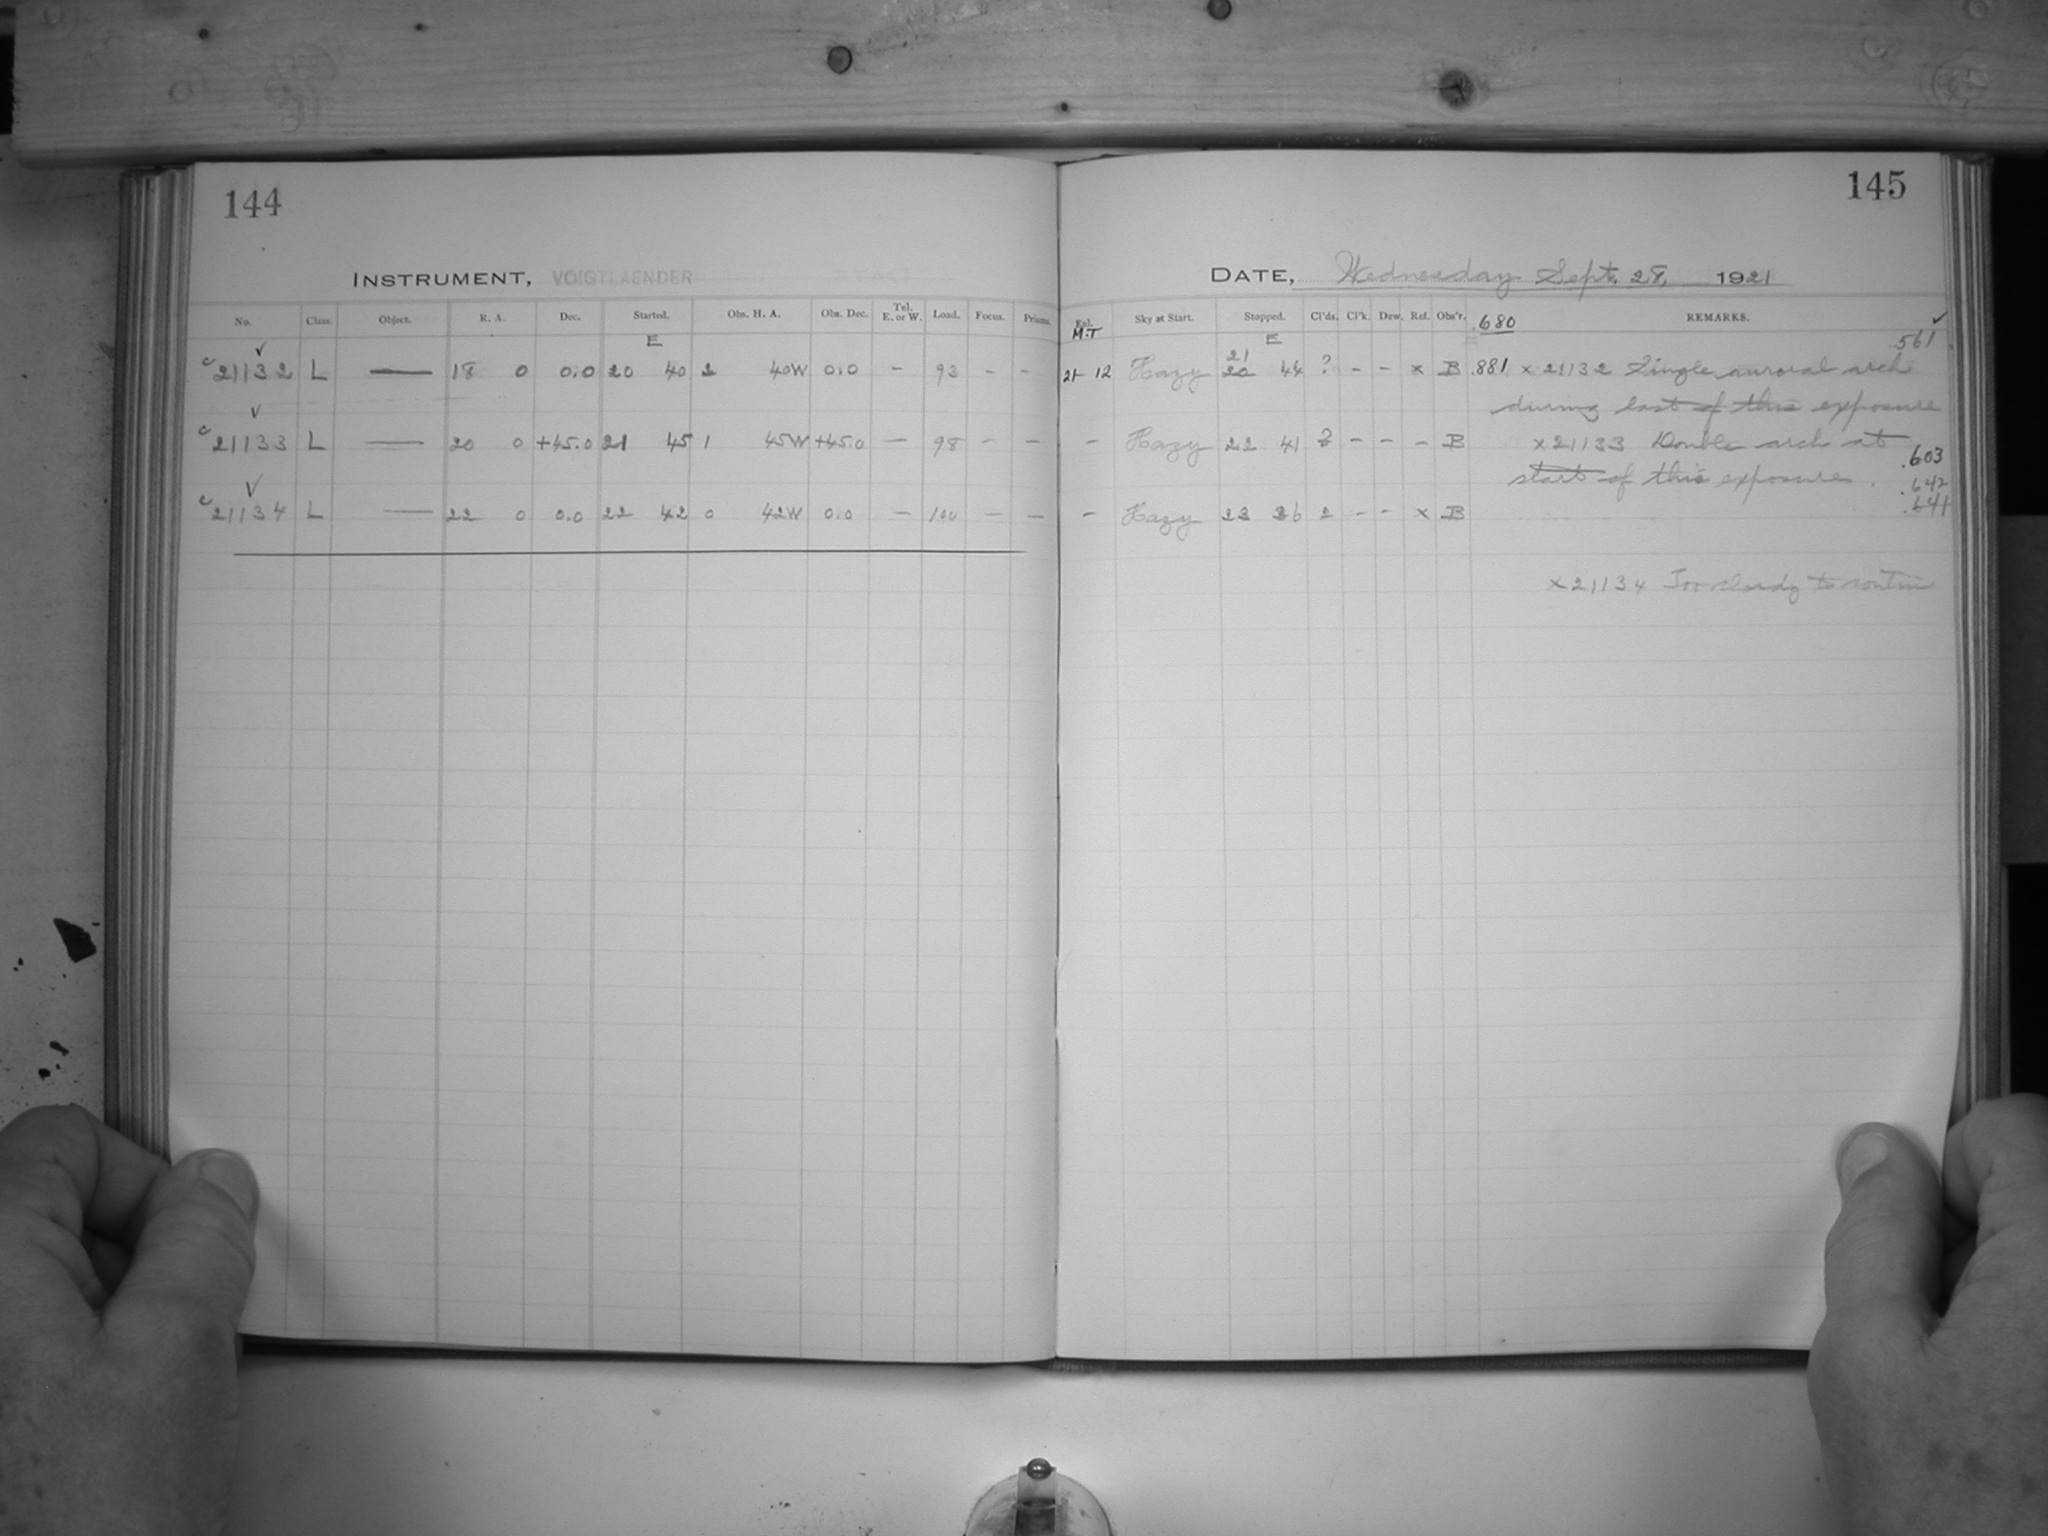 144
145
INSTRUMENT, VOIGTLAENDER
DATE, Wednesday Sept. 28, 1921
No. Class. Object. R. A. Dec. Started. Obs. H. A. Obs. Dec. Tel. E. or W. Load. Focus. Prisms.
M.T Sky at Start. Stopped. Cl'ds. Cl'k. Dew. Ref. Obs'r. .680 REMARKS.
E
E .561 ✓
✓
c 21132 L — 18 0 0.0 20 40 2 40W 0.0 — 93 - -
21 12 Hazy 21 20 44 ? - - x B .881 x 21132 Single auroral arch
during last of this exposure
✓
c 21133 L — 20 0 +45.0 21 45 1 45W +45.0 — 98 - -
- Hazy 22 41 ? - - - B x 21133 Double arch at .603
start of this exposure. .642
✓
c 21134 L — 22 0 0.0 22 42 0 42W 0.0 — 100 — —
- Hazy 23 36 2 - - x B .641
x 21134 Too cloudy to contin